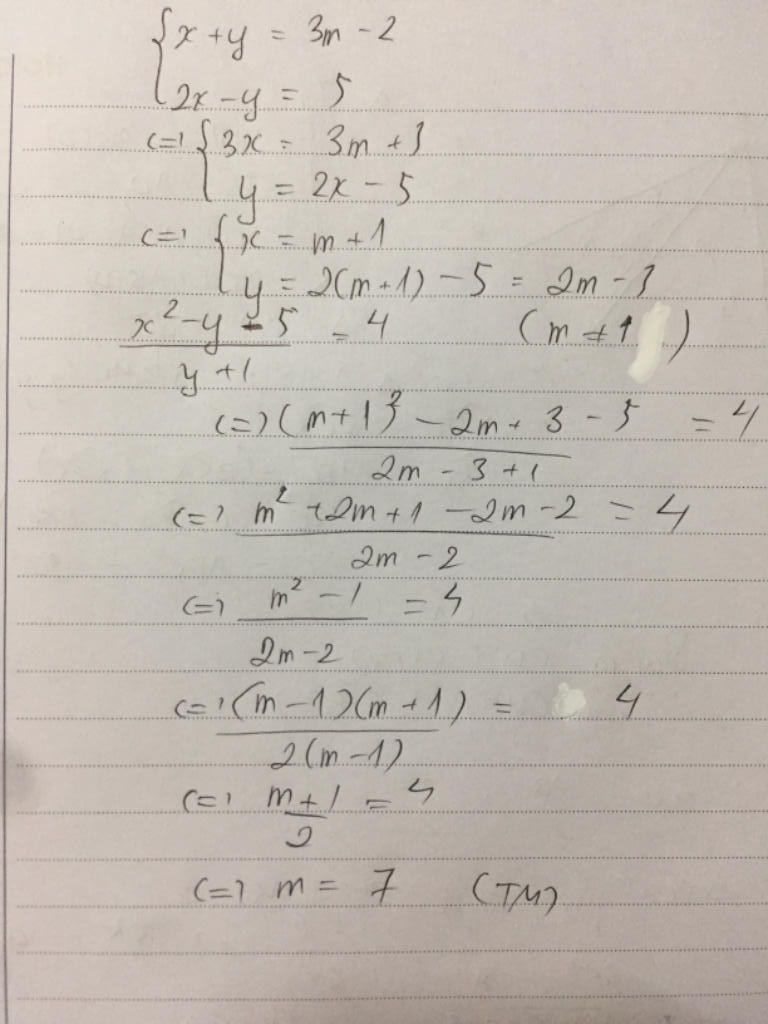 { x + y = 3m - 2
2x - y = 5
<=> { 3x = 3m + 3
y = 2x - 5
<=> { x = m + 1
y = 2(m+1) - 5 = 2m - 3
x² - y - 5 = 4 (m ≠ 1)
y + 1
<=> (m+1)² - 2m + 3 - 5 = 4
2m - 3 + 1
<=> m² + 2m + 1 - 2m - 2 = 4
2m - 2
<=> m² - 1 = 4
2m - 2
<=> (m - 1)(m + 1) = 4
2(m - 1)
<=> m + 1 = 4
2
<=> m = 7 (TM)